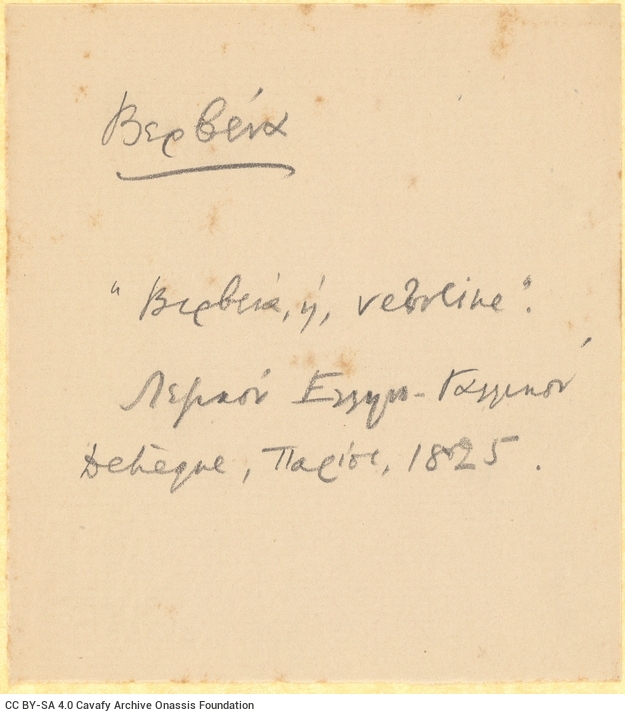 Βερβένα
"Βερβένα, ἡ, verveine".
Λεξικόν Ελλην-Γαλλικόν
Dehèque, Παρίσι, 1825.
CC BY-SA 4.0 Cavafy Archive Onassis Foundation